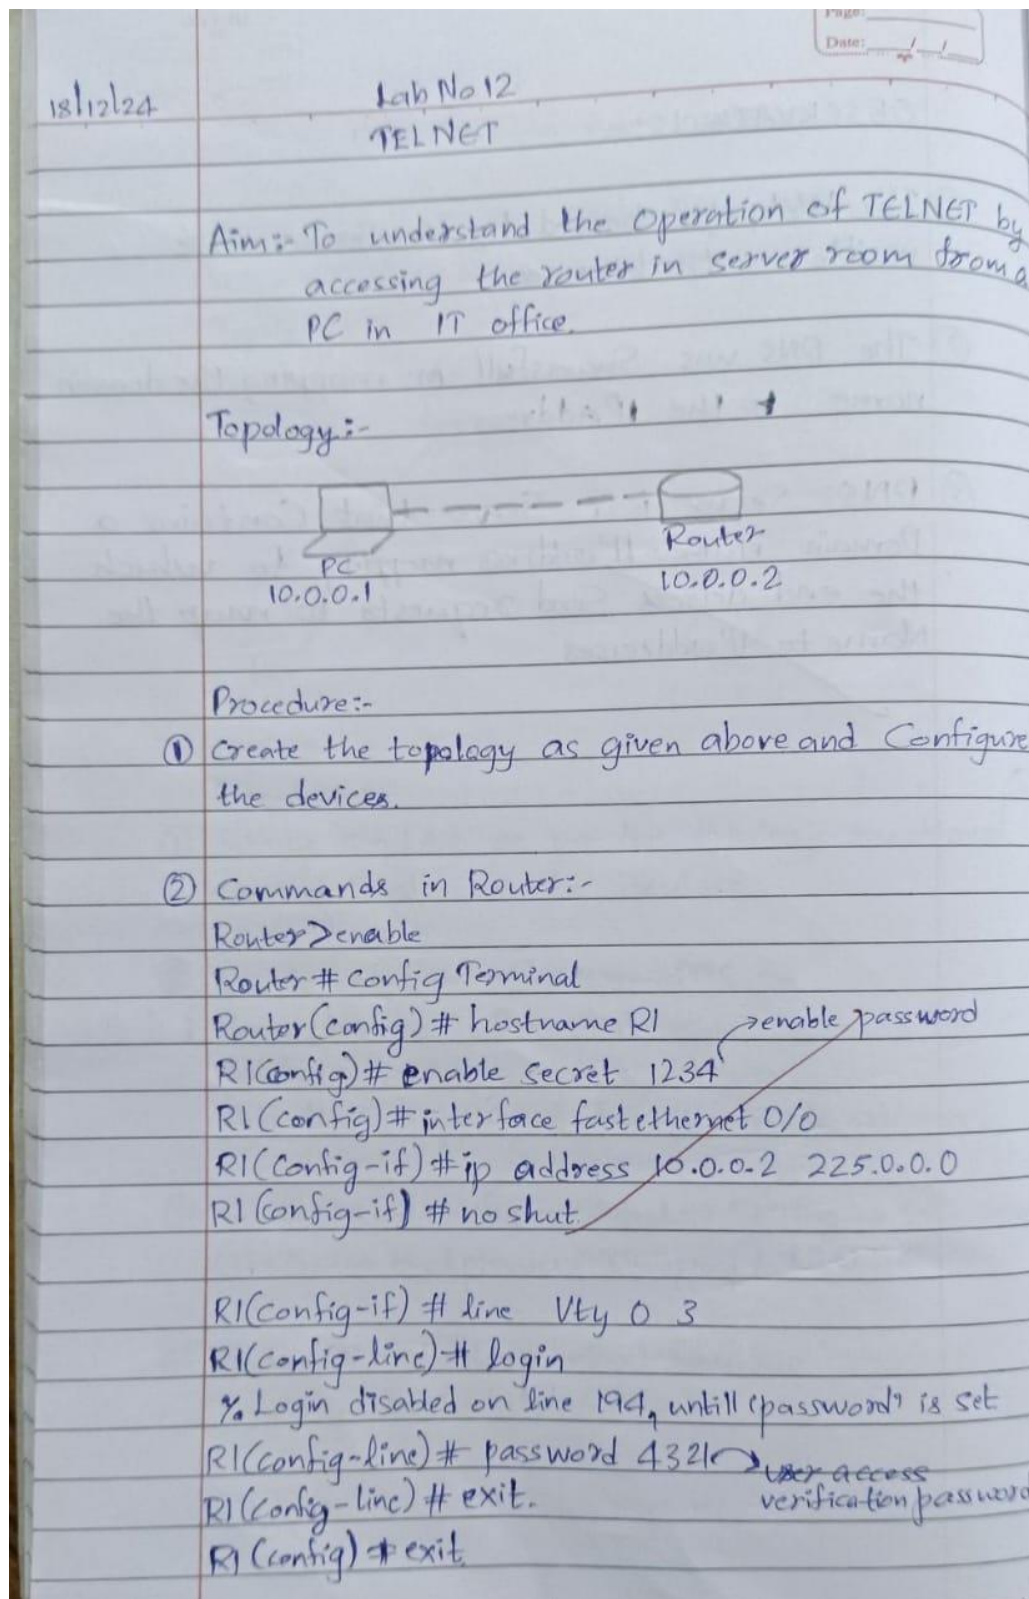 Page:
Date:
18/12/24
Lab No 12
TELNET
Aim:- To understand the operation of TELNET by
accessing the router in server room from a
PC in IT office.
Topology:-
PC
10.0.0.1
Router
10.0.0.2
Procedure:-
① Create the topology as given above and Configure
the devices.
② Commands in Router:-
Router>enable
Router # Config Terminal
Router(config) # hostname R1
→enable password
R1(config) # enable secret 1234
R1(config) # interface fastethernet 0/0
R1(config-if) # ip address 10.0.0.2 225.0.0.0
R1(config-if) # no shut
R1(config-if) # line Vty 0 3
R1(config-line) # login
% Login disabled on line 194, untill "password" is set
R1(config-line) # password 4321
→user access
verification password
R1(config-line) # exit.
R1(config) # exit